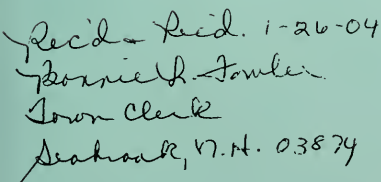 Rec'd - Rec'd. 1-26-04
Bonnie L. Fowler
Town Clerk
Seabrook, N.H. 03874